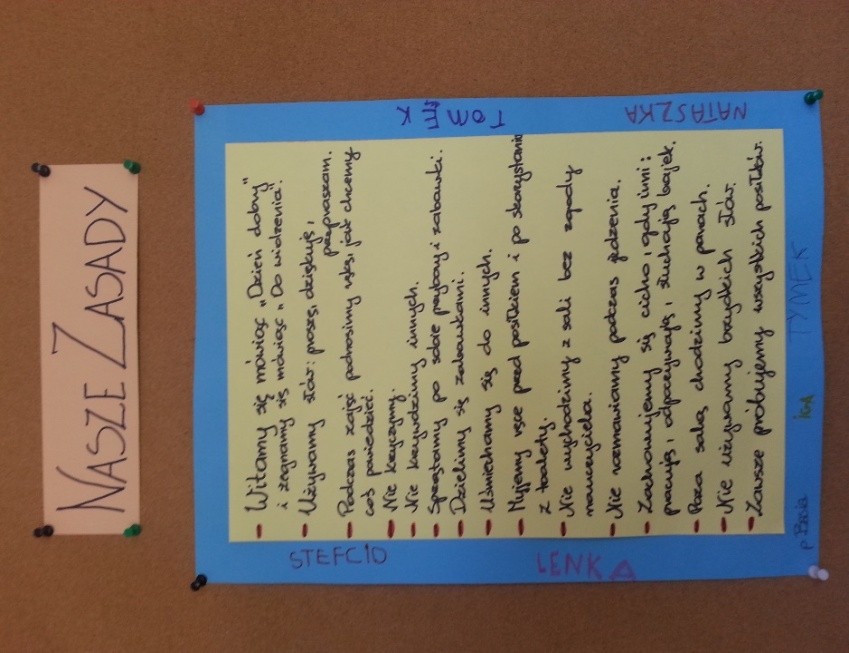 NASZE ZASADY
- Witamy się mówiąc „Dzień dobry"
i żegnamy się mówiąc „Do widzenia".
- Używamy słów: proszę, dziękuję,
przepraszam.
- Podczas zajęć podnosimy rękę, jak chcemy
coś powiedzieć.
- Nie krzyczymy.
- Nie krzywdzimy innych.
- Sprzątamy po sobie przybory i zabawki.
- Dzielimy się zabawkami.
- Uśmiechamy się do innych.
- Myjemy ręce przed posiłkiem i po skorzystaniu
z toalety.
- Nie wychodzimy z sali bez zgody
nauczyciela.
- Nie rozmawiamy podczas jedzenia.
- Zachowujemy się cicho, gdy inni:
pracują, odpoczywają, słuchają bajek.
- Poza salą chodzimy w parach.
- Nie używamy brzydkich słów.
- Zawsze próbujemy wszystkich posiłków.
STEFCIO
LENKA
TOMEK
NATASZKA
p. Basia
IGA
TYMEK